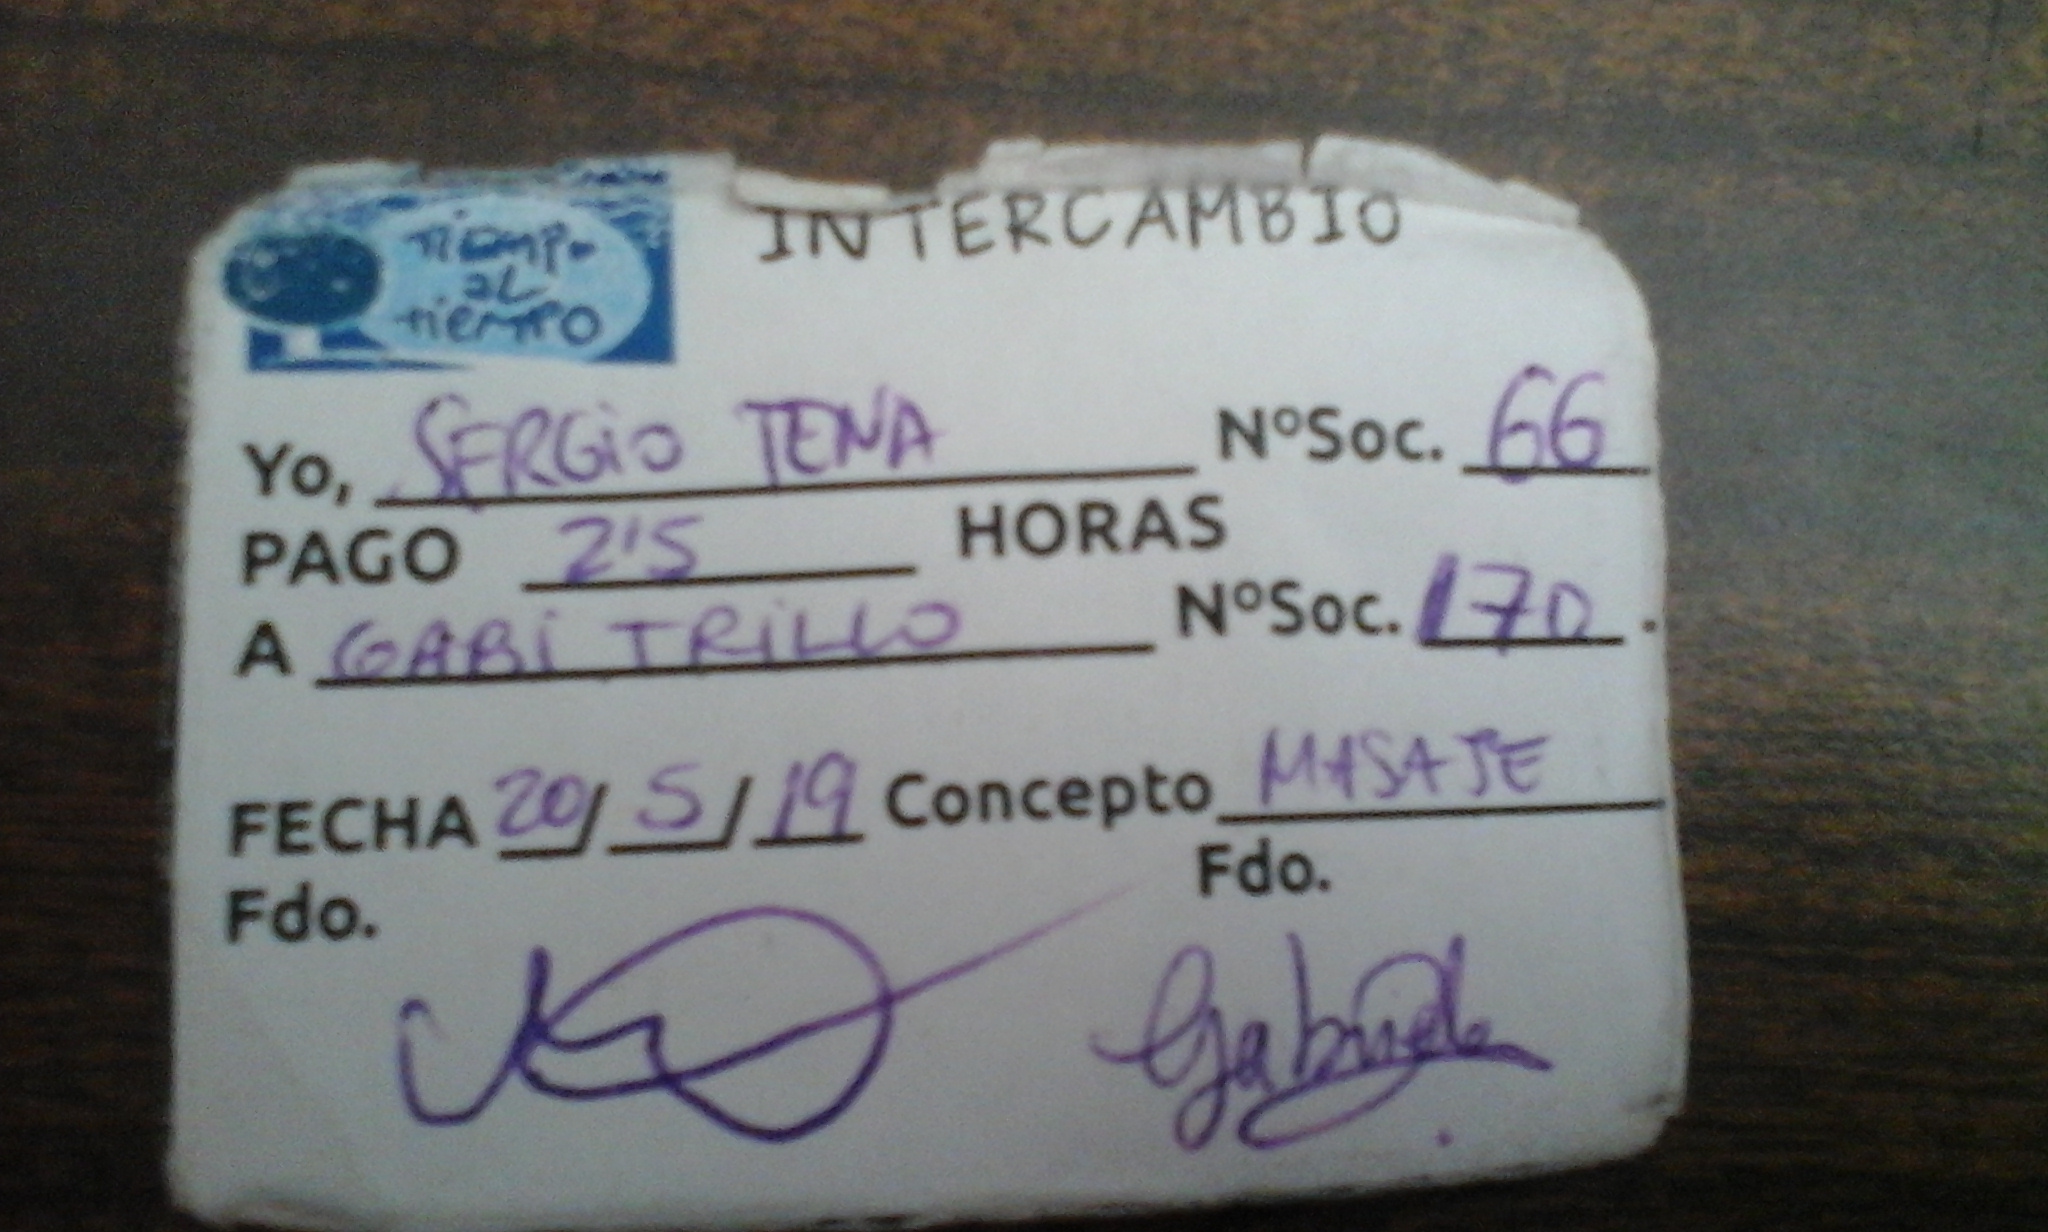 TIEMPO
AL
TIEMPO
INTERCAMBIO
Yo, SERGIO TENA NºSoc. 66
PAGO 2'5 HORAS
A GABI TRILLO NºSoc. 170.
FECHA 20/5/19 Concepto MASAJE
Fdo. Fdo.
Gabriela